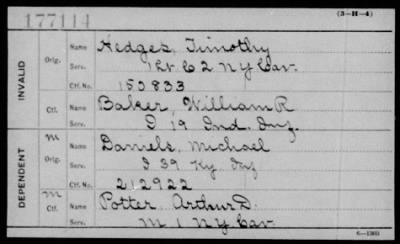 177114
(3-H-4)
INVALID
Orig.
Name Hedges, Timothy
Serv. C 2 N Y Cav.
Ctf. No. 153833
Ctf.
Name Baker, William R
Serv. I 19 Ind. Inf.
DEPENDENT
m
Orig.
Name Daniels, Michael
Serv. I 39 Ky. Inf
Ctf. No. 212922
m
Ctf.
Name Potter, Arthur D.
Serv. M 1 N Y Cav